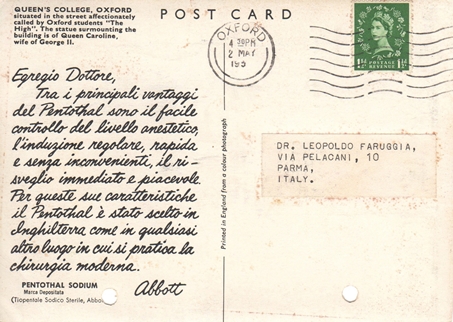 QUEEN'S COLLEGE, OXFORD
situated in the street affectionately
called by Oxford students "The
High". The statue surmounting the
building is of Queen Caroline,
wife of George II.
POST CARD
OXFORD
4 30PM
2 MAY
195
1½D 1½D
POSTAGE
REVENUE
Egregio Dottore,
Tra i principali vantaggi
del Pentothal sono il facile
controllo del livello anestetico,
l'induzione regolare, rapida
e senza inconvenienti, il ri-
sveglio immediato e piacevole.
Per queste sue caratteristiche
il Pentothal è stato scelto in
Inghilterra come in qualsiasi
altro luogo in cui si pratica la
chirurgia moderna.
Abbott
PENTOTHAL SODIUM
Marca Depositata
(Tiopentale Sodico Sterile, Abbo
Printed in England from a colour photograph
DR. LEOPOLDO FARUGGIA,
VIA PELACANI, 10
PARMA,
ITALY.